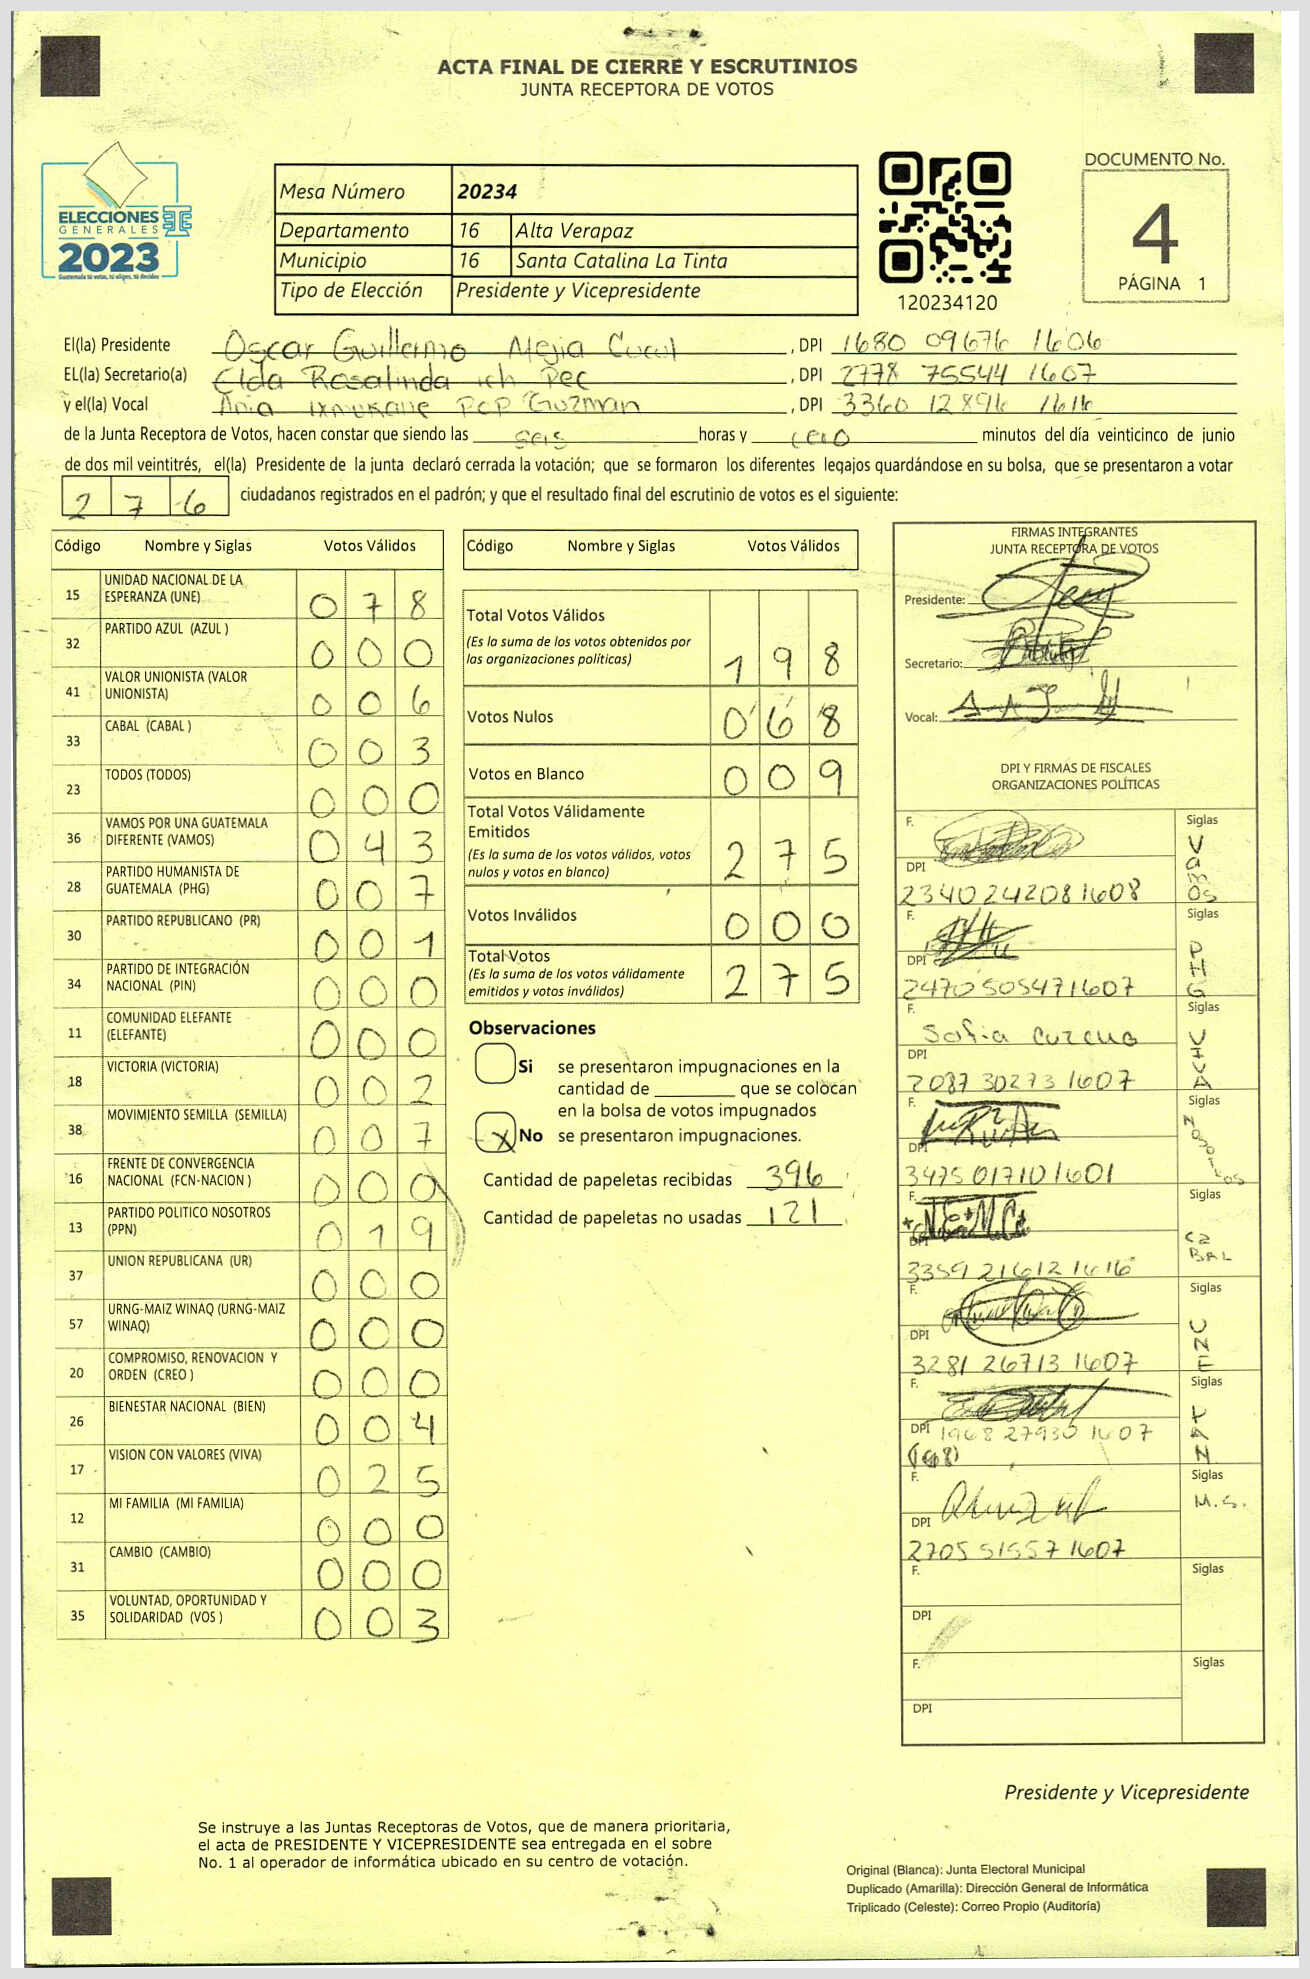 ACTA FINAL DE CIERRE Y ESCRUTINIOS
JUNTA RECEPTORA DE VOTOS
ELECCIONES
GENERALES
2023
Guatemala tú votas, tú eliges, tú decides
Mesa Número 20234
Departamento 16 Alta Verapaz
Municipio 16 Santa Catalina La Tinta
Tipo de Elección Presidente y Vicepresidente
120234120
DOCUMENTO No.
4
PÁGINA 1
El(la) Presidente Oscar Guillermo Mejia Cucul, DPI 1680 09676 1606
EL(la) Secretario(a) Elda Rosalinda ich Pec, DPI 2778 75544 1607
y el(la) Vocal Guzman, DPI 3360 12896 1616
de la Junta Receptora de Votos, hacen constar que siendo las seis horas y cero minutos del día veinticinco de junio
de dos mil veintitrés, el(la) Presidente de la junta declaró cerrada la votación; que se formaron los diferentes legajos guardándose en su bolsa, que se presentaron a votar
276 ciudadanos registrados en el padrón; y que el resultado final del escrutinio de votos es el siguiente:
Código Nombre y Siglas Votos Válidos
15 UNIDAD NACIONAL DE LA ESPERANZA (UNE) 078
32 PARTIDO AZUL (AZUL ) 000
41 VALOR UNIONISTA (VALOR UNIONISTA) 006
33 CABAL (CABAL ) 003
23 TODOS (TODOS) 000
36 VAMOS POR UNA GUATEMALA DIFERENTE (VAMOS) 043
28 PARTIDO HUMANISTA DE GUATEMALA (PHG) 007
30 PARTIDO REPUBLICANO (PR) 001
34 PARTIDO DE INTEGRACIÓN NACIONAL (PIN) 000
11 COMUNIDAD ELEFANTE (ELEFANTE) 000
18 VICTORIA (VICTORIA) 002
38 MOVIMIENTO SEMILLA (SEMILLA) 007
16 FRENTE DE CONVERGENCIA NACIONAL (FCN-NACION ) 000
13 PARTIDO POLITICO NOSOTROS (PPN) 019
37 UNION REPUBLICANA (UR) 000
57 URNG-MAIZ WINAQ (URNG-MAIZ WINAQ) 000
20 COMPROMISO, RENOVACION Y ORDEN (CREO ) 000
26 BIENESTAR NACIONAL (BIEN) 004
17 VISION CON VALORES (VIVA) 025
12 MI FAMILIA (MI FAMILIA) 000
31 CAMBIO (CAMBIO) 000
35 VOLUNTAD, OPORTUNIDAD Y SOLIDARIDAD (VOS ) 003
Código Nombre y Siglas Votos Válidos
Total Votos Válidos
(Es la suma de los votos obtenidos por
las organizaciones políticas) 198
Votos Nulos 068
Votos en Blanco 009
Total Votos Válidamente
Emitidos
(Es la suma de los votos válidos, votos
nulos y votos en blanco) 275
Votos Inválidos 000
Total Votos
(Es la suma de los votos válidamente
emitidos y votos inválidos) 275
Observaciones
Si se presentaron impugnaciones en la
cantidad de ________ que se colocan
en la bolsa de votos impugnados
X No se presentaron impugnaciones.
Cantidad de papeletas recibidas 396
Cantidad de papeletas no usadas 121
FIRMAS INTEGRANTES
JUNTA RECEPTORA DE VOTOS
Presidente:
Secretario:
Vocal:
DPI Y FIRMAS DE FISCALES
ORGANIZACIONES POLÍTICAS
F. Siglas Vamos
DPI
2340242081608
F. Siglas PHG
DPI
2470505471607
F. Siglas VIVA
Sofia
DPI
2087 30273 1607
F. Siglas
DPI
3475 01710 1601
F. Siglas CaBAL
DPI
3359 21612 1616
F. Siglas UNE
DPI
3281 26713 1607
F. Siglas
DPI 1968 27930 1607
F. Siglas M.S.
DPI
2705 51557 1607
F. Siglas
DPI
F. Siglas
DPI
Presidente y Vicepresidente
Se instruye a las Juntas Receptoras de Votos, que de manera prioritaria,
el acta de PRESIDENTE Y VICEPRESIDENTE sea entregada en el sobre
No. 1 al operador de informática ubicado en su centro de votación.
Original (Blanca): Junta Electoral Municipal
Duplicado (Amarilla): Dirección General de Informática
Triplicado (Celeste): Correo Propio (Auditoría)